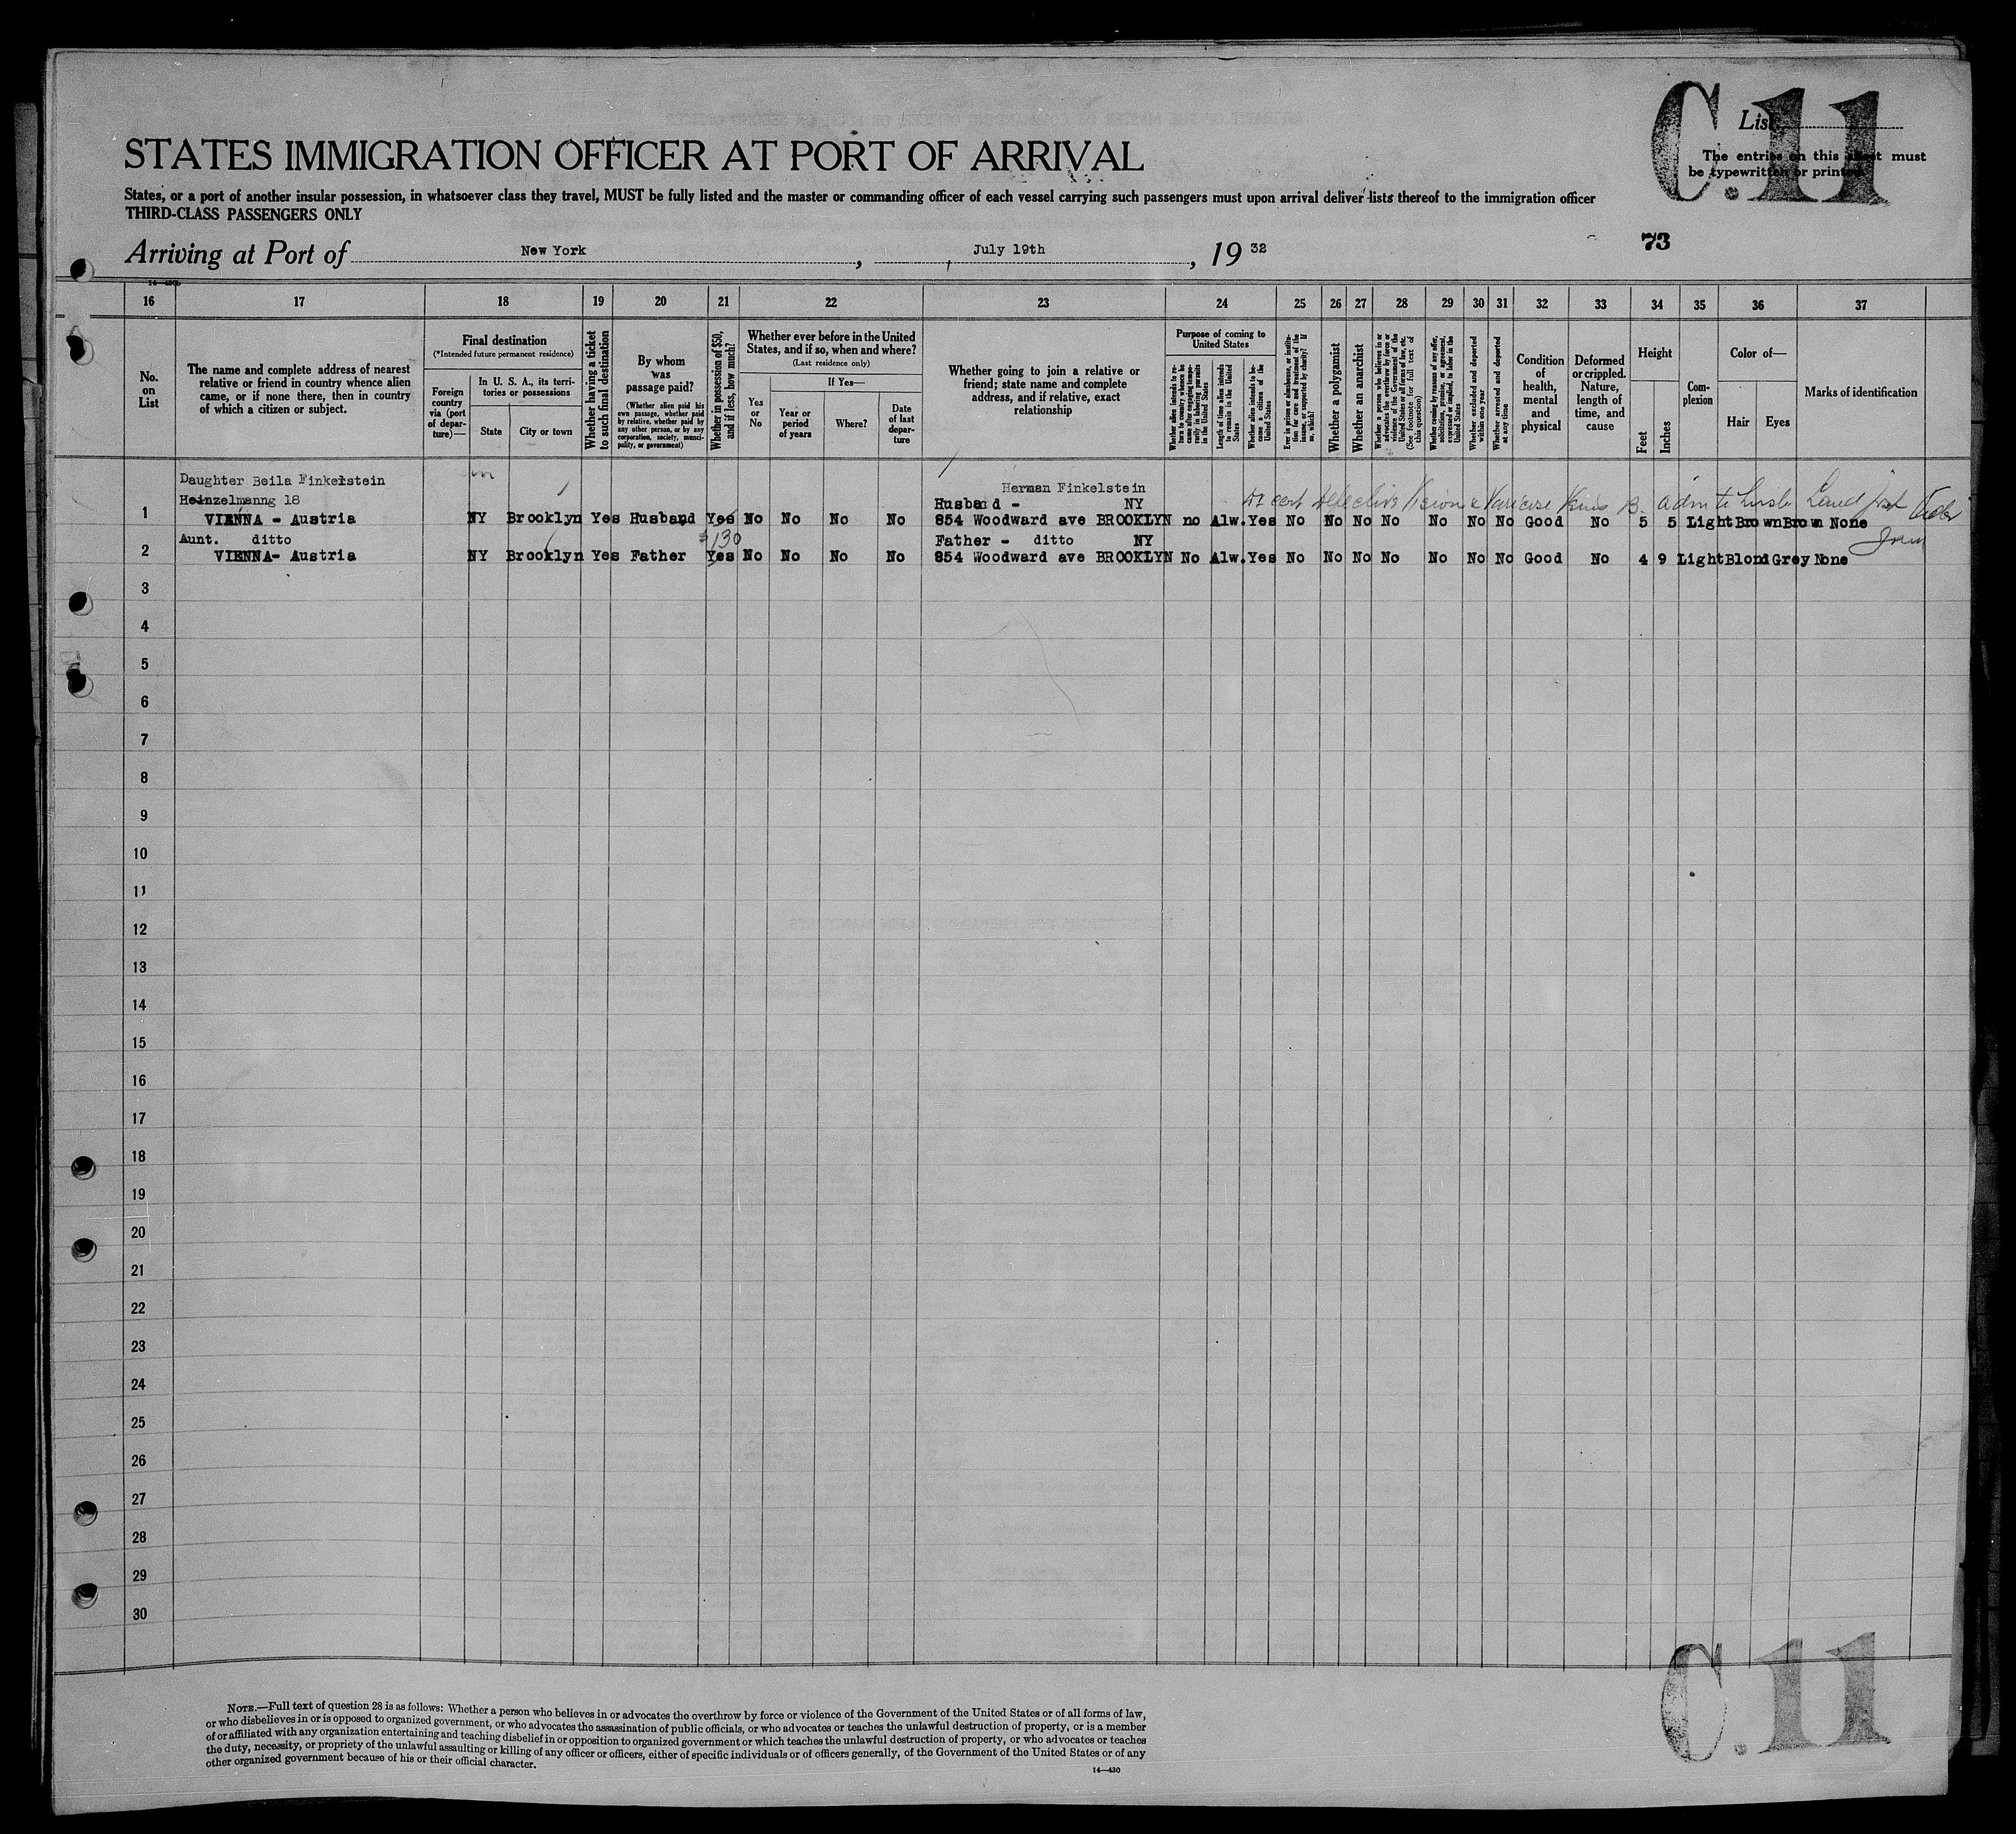 C.11
List
The entries on this sheet must
be typewritten or printed
STATES IMMIGRATION OFFICER AT PORT OF ARRIVAL
States, or a port of another insular possession, in whatsoever class they travel, MUST be fully listed and the master or commanding officer of each vessel carrying such passengers must upon arrival deliver lists thereof to the immigration officer
THIRD-CLASS PASSENGERS ONLY
Arriving at Port of New York, July 19th, 19 32
73
14—430b
16 17 18 19 20 21 22 23 24 25 26 27 28 29 30 31 32 33 34 35 36 37
No. on List
The name and complete address of nearest relative or friend in country whence alien came, or if none there, then in country of which a citizen or subject.
Final destination
(*Intended future permanent residence)
Foreign country via (port of departure)—
In U. S. A., its territories or possessions
State
City or town
Whether having a ticket to such final destination
By whom was passage paid?
(Whether alien paid his own passage, whether paid by relative, whether paid by any other person, or by any corporation, society, municipality, or government)
Whether in possession of $50, and if less, how much?
Whether ever before in the United States, and if so, when and where?
(Last residence only)
Yes or No
If Yes—
Year or period of years
Where?
Date of last departure
Whether going to join a relative or friend; state name and complete address, and if relative, exact relationship
Purpose of coming to United States
Whether alien intends to return to country whence he came after engaging temporarily in laboring pursuits in the United States
Length of time alien intends to remain in the United States
Whether alien intends to become a citizen of the United States
Ever in prison or almshouse, or institution for care and treatment of the insane, or supported by charity? If so, which?
Whether a polygamist
Whether an anarchist
Whether a person who believes in or advocates the overthrow by force or violence of the Government of the United States or all forms of law, etc. (See footnote for full text of this question)
Whether coming by reasons of any offer, solicitation, promise, or agreement, expressed or implied, to labor in the United States
Whether excluded and deported within one year
Whether arrested and deported at any time
Condition of health, mental and physical
Deformed or crippled. Nature, length of time, and cause
Height
Feet
Inches
Complexion
Color of—
Hair
Eyes
Marks of identification
Daughter Beila Finkelstein
Heinzelmanng 18
Herman Finkelstein
Husband - NY
1 VIENNA - Austria NY Brooklyn Yes Husband Yes No No No No 854 Woodward ave BROOKLYN no Alw. Yes No No No No No No No Good No 5 5 Light Brown Brown None
Aunt. ditto $130 Father - ditto NY
2 VIENNA- Austria NY Brooklyn Yes Father Yes No No No No 854 Woodward ave BROOKLYN No Alw. Yes No No No No No No No Good No 4 9 Light Blond Grey None
3
4
5
6
7
8
9
10
11
12
13
14
15
16
17
18
19
20
21
22
23
24
25
26
27
28
29
30
NOTE.—Full text of question 28 is as follows: Whether a person who believes in or advocates the overthrow by force or violence of the Government of the United States or of all forms of law,
or who disbelieves in or is opposed to organized government, or who advocates the assassination of public officials, or who advocates or teaches the unlawful destruction of property, or is a member
of or affiliated with any organization entertaining and teaching disbelief in or opposition to organized government or which teaches the unlawful destruction of property, or who advocates or teaches
the duty, necessity, or propriety of the unlawful assaulting or killing of any officer or officers, either of specific individuals or of officers generally, of the Government of the United States or of any
other organized government because of his or their official character.
14—430
C.11